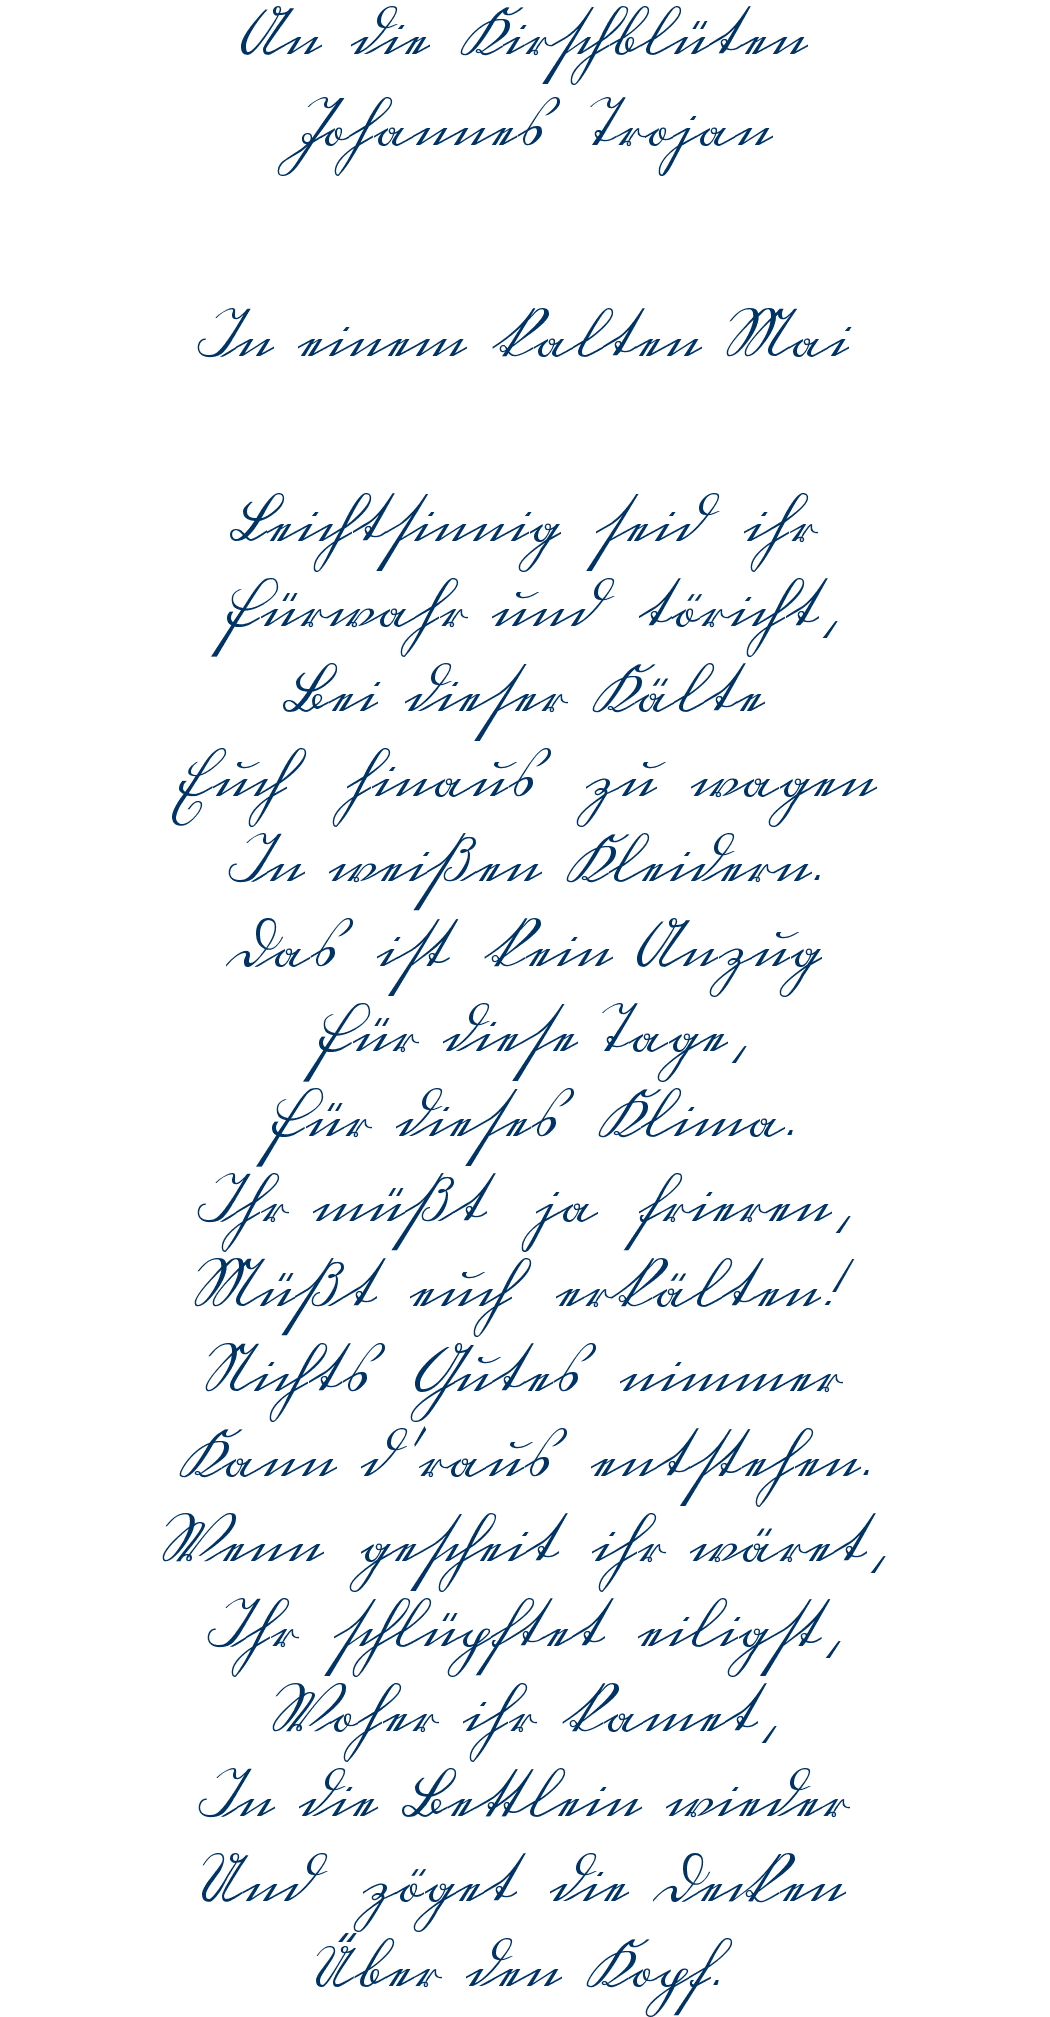 An die Kirschblüten
Johannes Trojan
In einem kalten Mai
Leichtsinnig seid ihr
Fürwahr und töricht,
Bei dieser Kälte
Euch hinaus zu wagen
In weißen Kleidern.
Das ist kein Anzug
Für diese Tage,
Für dieses Klima.
Ihr müßt ja frieren,
Müßt euch erkälten!
Nichts Gutes nimmer
Kann d'raus entstehen.
Wenn gescheit ihr wäret,
Ihr schlüpftet eiligst,
Woher ihr kamet,
In die Bettlein wieder
Und zöget die Decken
Über den Kopf.